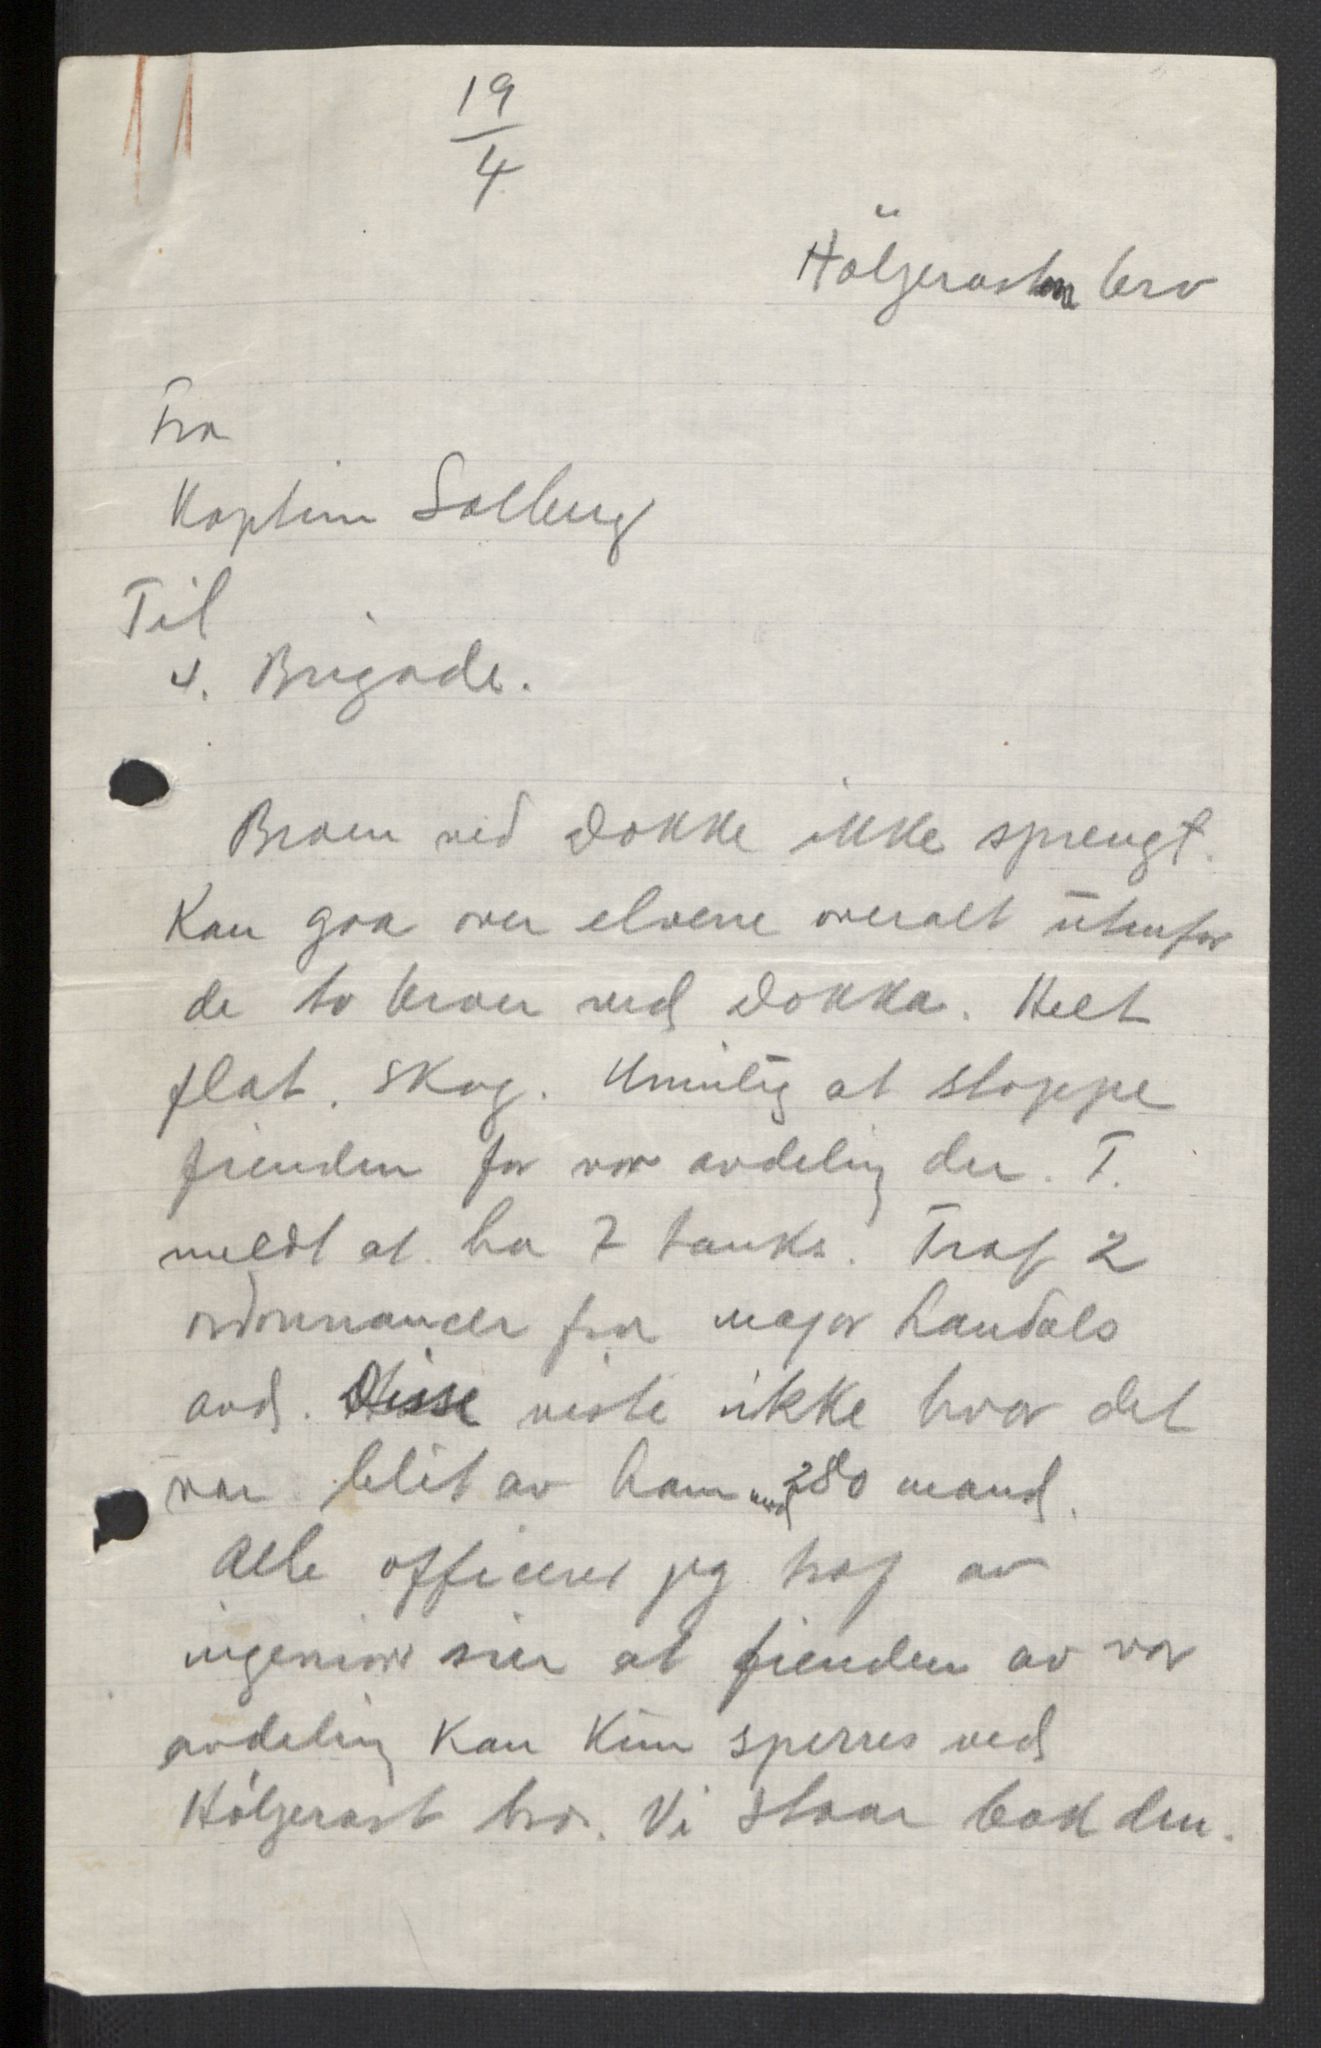 19
4
Hölgerast bro
Fra
Kaptein Solberg
Til
4. Brigade.
Broen ved Dokke ikke sprengt.
Kan gaa over elvene overalt utenfor
de to broer ved Dokka. Helt
flat. Skog. Umulig at stoppe
fienden for vor avdeling der. T.
meldt at ha 7 tanks. Traf 2
ordonnancer fra major Landals
avd. Disse viste ikke hvor det
var blit av ham med 280 mand.
Alle officerer jeg traf av
ingeniør sier at fienden av vor
avdeling kan kun sperres ved
Hölgerast bro. Vi staar bak den.